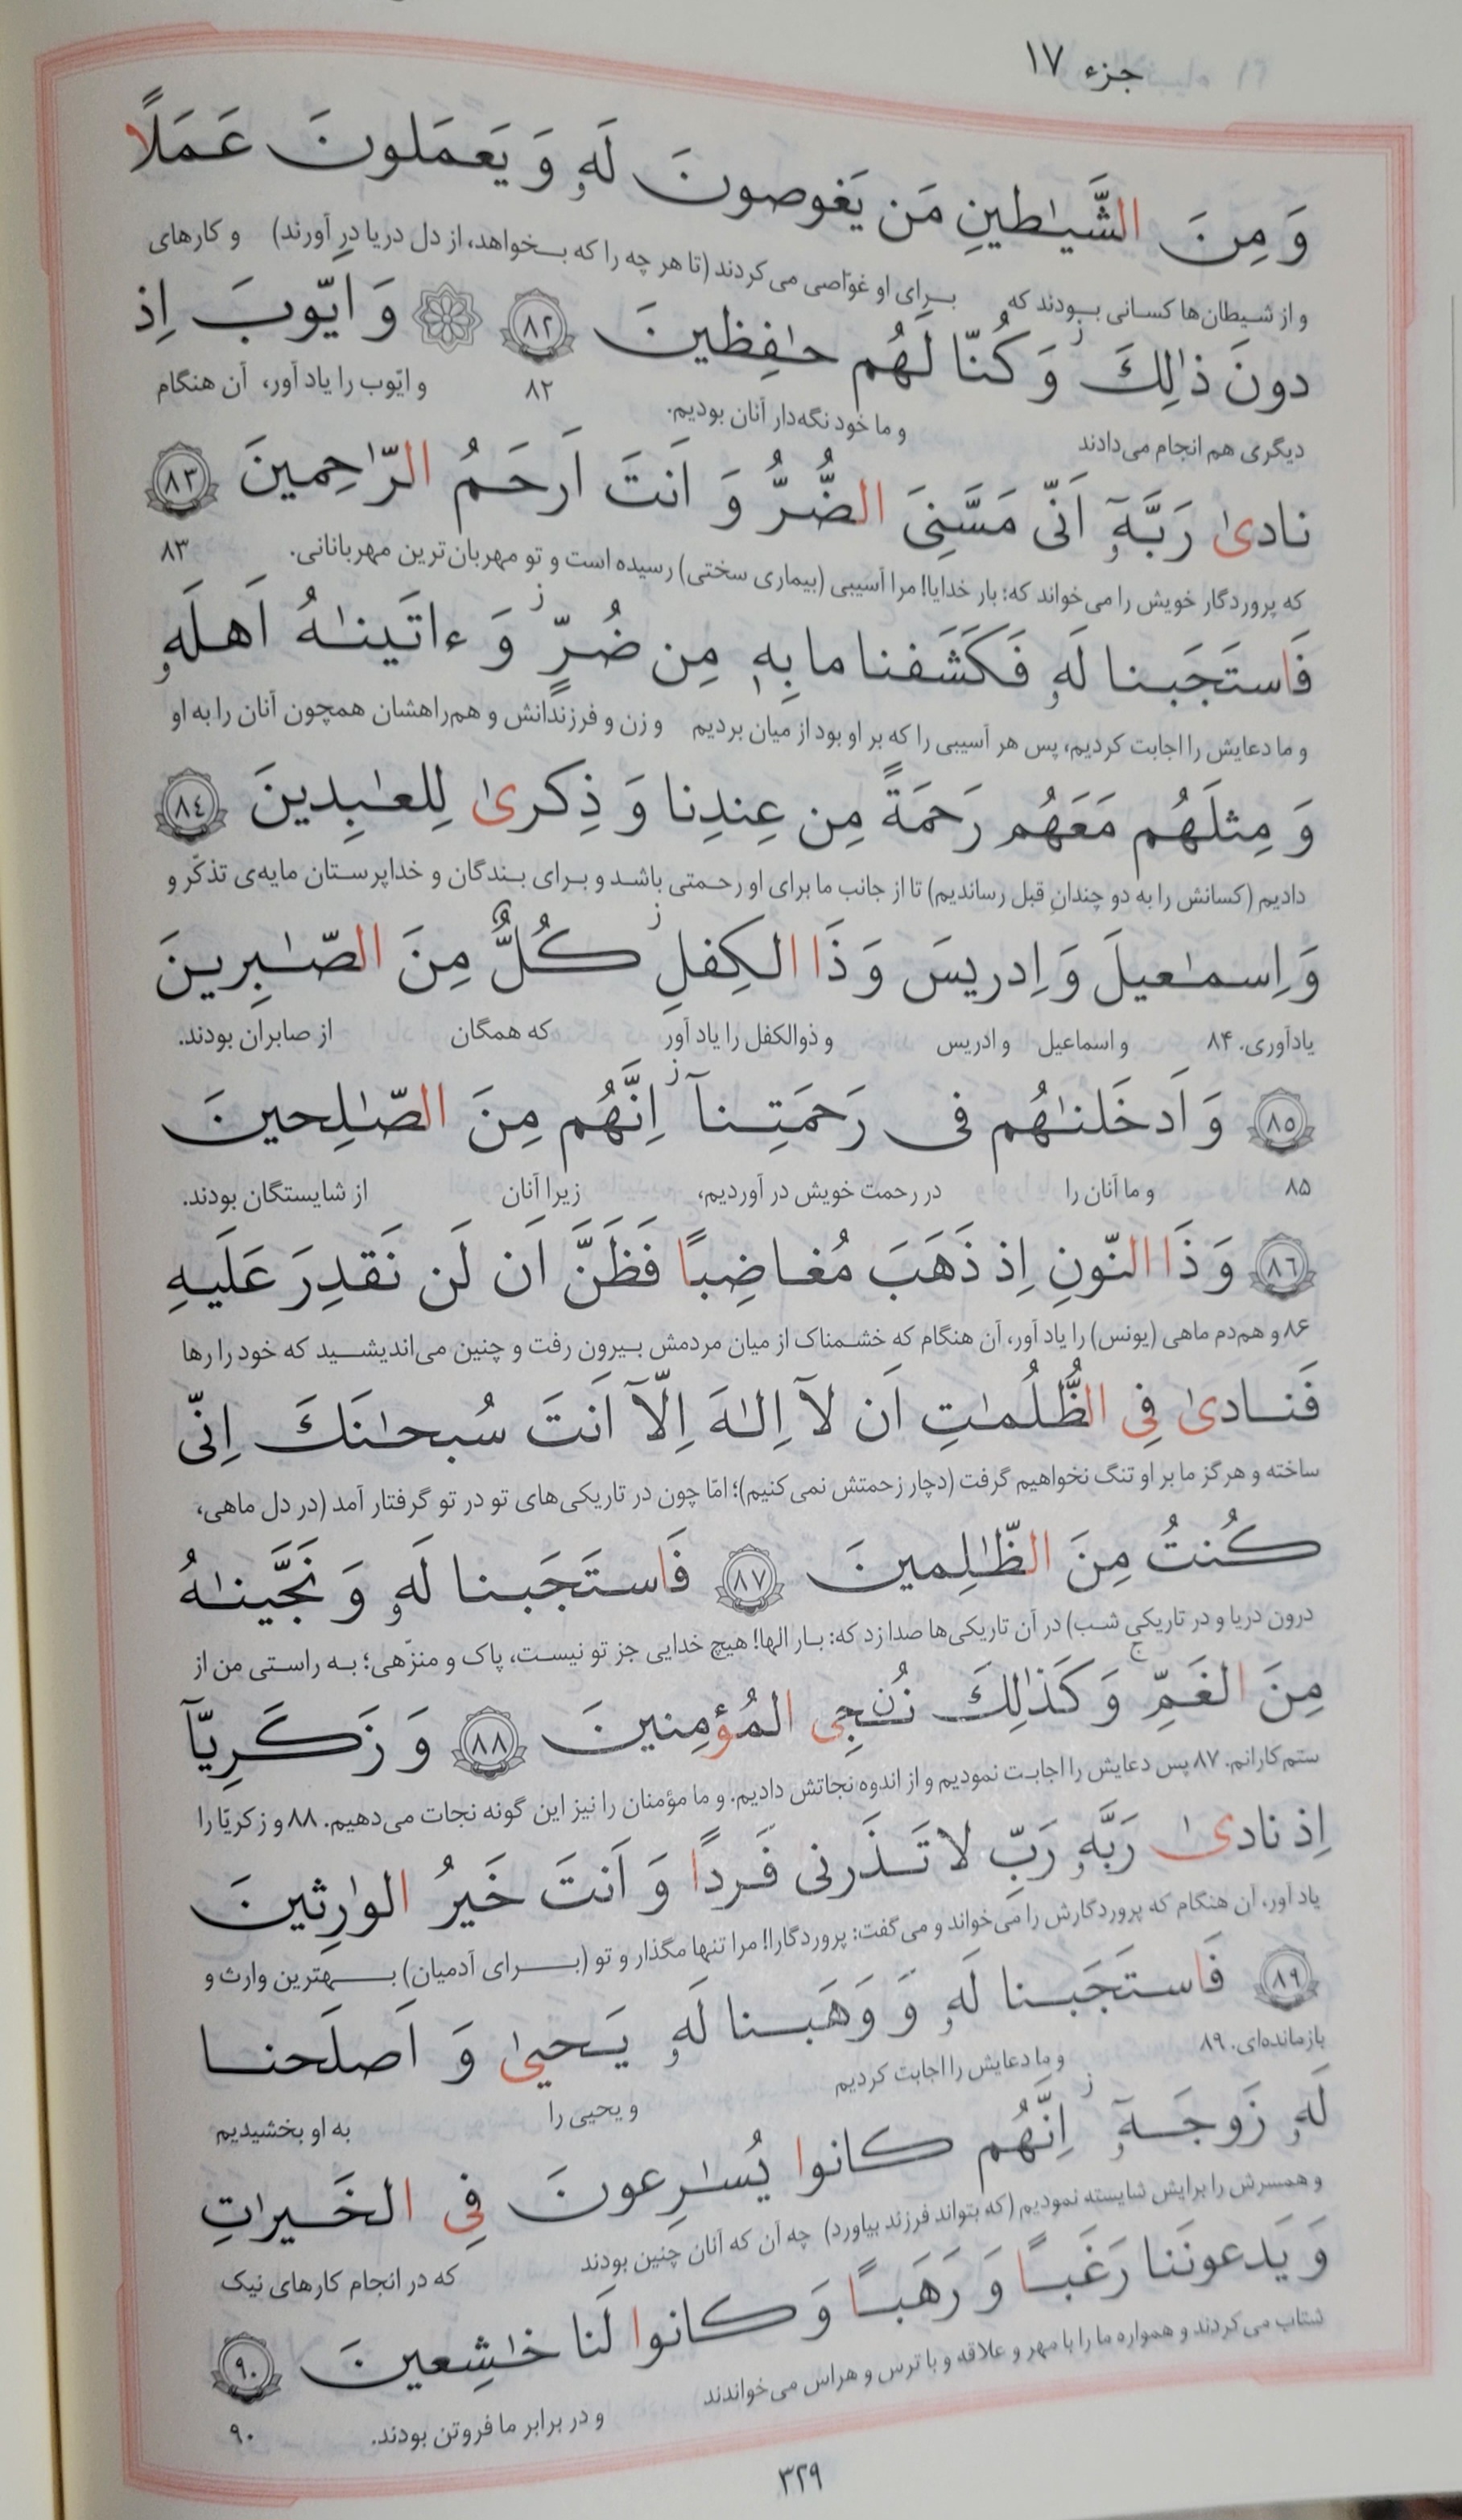 جزء ۱۷
وَ مِنَ الشَّيٰطينِ مَن يَغوصونَ لَهٗ وَ يَعمَلونَ عَمَلًا
و از شیطان‌ها کسانی بودند که برای او غوّاصی می‌کردند (تا هر چه را که بخواهد، از دل دریا در آورند) و کارهای
دونَ ذٰلِكَ ز وَ كُنّا لَهُم حٰفِظينَ ﴿٨٢﴾ وَ اَيّوبَ اِذ
دیگری هم انجام می‌دادند و ما خود نگه‌دار آنان بودیم. ۸۲ و ایّوب را یاد آور، آن هنگام
نادىٰ رَبَّهٗٓ اَنّى مَسَّنِىَ الضُّرُّ وَ اَنتَ اَرحَمُ الرّٰحِمينَ ﴿٨٣﴾
که پروردگار خویش را می‌خواند که: بار خدایا! مرا آسیبی (بیماری سختی) رسیده است و تو مهربان‌ترین مهربانانی. ۸۳
فَاستَجَبنا لَهٗ فَكَشَفنا ما بِهٖ مِن ضُرٍّ ز وَ ءاتَينٰهُ اَهلَهٗ
و ما دعایش را اجابت کردیم، پس هر آسیبی را که بر او بود از میان بردیم و زن و فرزندانش و هم‌راهشان همچون آنان را به او
وَ مِثلَهُم مَعَهُم رَحمَةً مِن عِندِنا وَ ذِكرىٰ لِلعٰبِدينَ ﴿٨٤﴾
دادیم (کسانش را به دو چندانِ قبل رساندیم) تا از جانب ما برای او رحمتی باشد و برای بندگان و خداپرستان مایه‌ی تذکّر و
وَ اِسمٰعيلَ وَ اِدريسَ وَ ذَا الكِفلِ ز كُلٌّ مِنَ الصّٰبِرينَ
یادآوری. ۸۴ و اسماعیل و ادریس و ذوالکفل را یاد آور که همگان از صابران بودند.
﴿٨٥﴾ وَ اَدخَلنٰهُم فى رَحمَتِنآ ز اِنَّهُم مِنَ الصّٰلِحينَ
۸۵ و ما آنان را در رحمت خویش در آوردیم، زیرا آنان از شایستگان بودند.
﴿٨٦﴾ وَ ذَا النّونِ اِذ ذَهَبَ مُغاضِبًا فَظَنَّ اَن لَن نَقدِرَ عَلَيهِ
۸۶ و هم‌دم ماهی (یونس) را یاد آور، آن هنگام که خشمناک از میان مردمش بیرون رفت و چنین می‌اندیشید که خود را رها
فَنادىٰ فِى الظُّلُمٰتِ اَن لآ اِلٰهَ اِلّآ اَنتَ سُبحٰنَكَ اِنّى
ساخته و هرگز ما بر او تنگ نخواهیم گرفت (دچار زحمتش نمی‌کنیم)؛ امّا چون در تاریکی‌های تو در تو گرفتار آمد (در دل ماهی،
كُنتُ مِنَ الظّٰلِمينَ ﴿٨٧﴾ فَاستَجَبنا لَهٗ وَ نَجَّينٰهُ
درون دریا و در تاریکی شب) در آن تاریکی‌ها صدا زد که: بار الها! هیچ خدایی جز تو نیست، پاک و منزّهی؛ به راستی من از
مِنَ الغَمِّ ج وَ كَذٰلِكَ نُنجِى المُؤمِنينَ ﴿٨٨﴾ وَ زَكَرِيّآ
ستم‌کارانم. ۸۷ پس دعایش را اجابت نمودیم و از اندوه نجاتش دادیم. و ما مؤمنان را نیز این گونه نجات می‌دهیم. ۸۸ و زکریّا را
اِذ نادىٰ رَبَّهٗ رَبِّ لا تَذَرنى فَردًا وَ اَنتَ خَيرُ الوٰرِثينَ
یاد آور، آن هنگام که پروردگارش را می‌خواند و می‌گفت: پروردگارا! مرا تنها مگذار و تو (برای آدمیان) بهترین وارث و
﴿٨٩﴾ فَاستَجَبنا لَهٗ وَ وَهَبنا لَهٗ يَحيىٰ وَ اَصلَحنا
بازمانده‌ای. ۸۹ و ما دعایش را اجابت کردیم و یحیی را به او بخشیدیم
لَهٗ زَوجَهٗٓ ز اِنَّهُم كانوا يُسٰرِعونَ فِى الخَيرٰتِ
و همسرش را برایش شایسته نمودیم (که بتواند فرزند بیاورد) چه آن که آنان چنین بودند که در انجام کارهای نیک
وَ يَدعونَنا رَغَبًا وَ رَهَبًا وَ كانوا لَنا خٰشِعينَ ﴿٩٠﴾
شتاب می‌کردند و همواره ما را با مهر و علاقه و با ترس و هراس می‌خواندند و در برابر ما فروتن بودند. ۹۰
۳۲۹